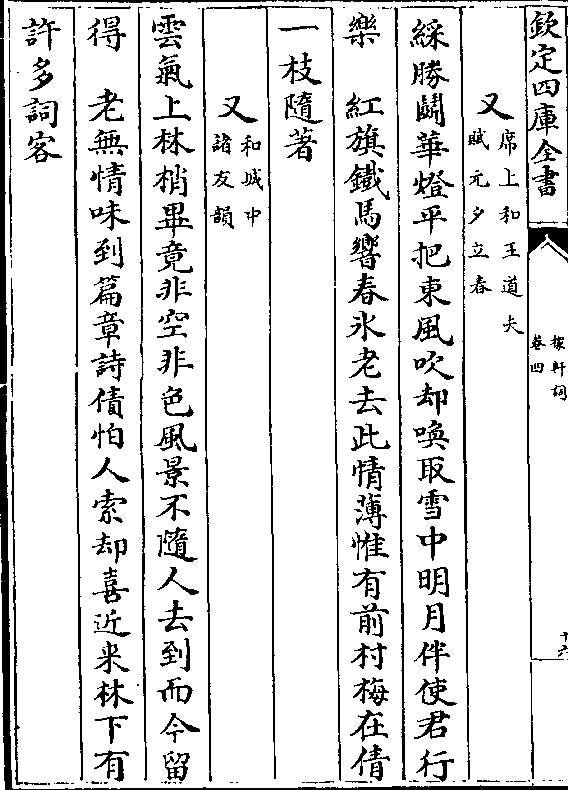 欽定四庫全書
稼軒詞
卷四
十六
又 席上和王道夫
賦元夕立春
綵勝鬭華燈平把東風吹却喚取雪中明月伴使君行
樂 紅旗鐵馬響春氷老去此情薄惟有前村梅在倩
一枝隨著
又 和城中
諸友韻
雲氣上林梢畢竟非空非色風景不隨人去到而今留
得 老無情味到篇章詩債怕人索却喜近来林下有
許多詞客